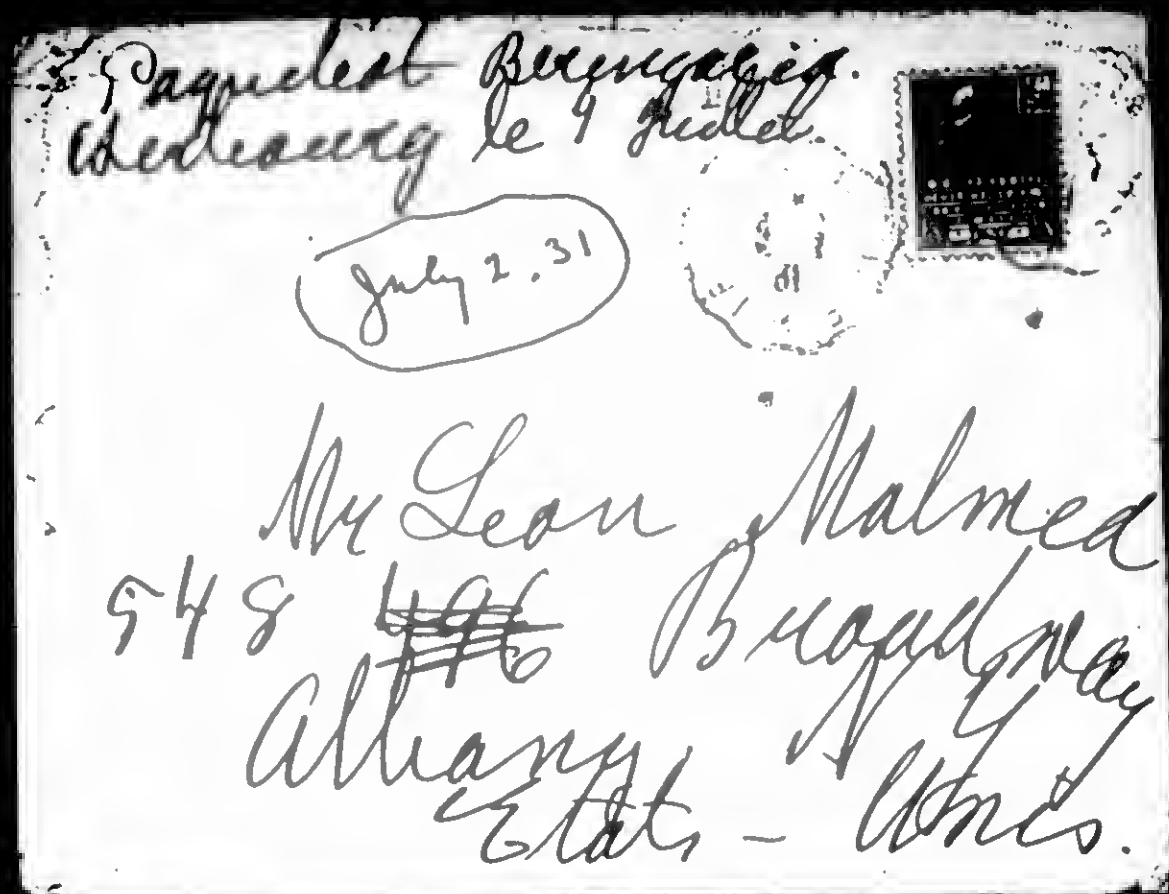 Paquebot Berengaria.
Cherbourg le 4 Juillet.
July 2. 31
Mr Leon Malmed
548 496 Broadway
Albany N Y
Etats - Unis.